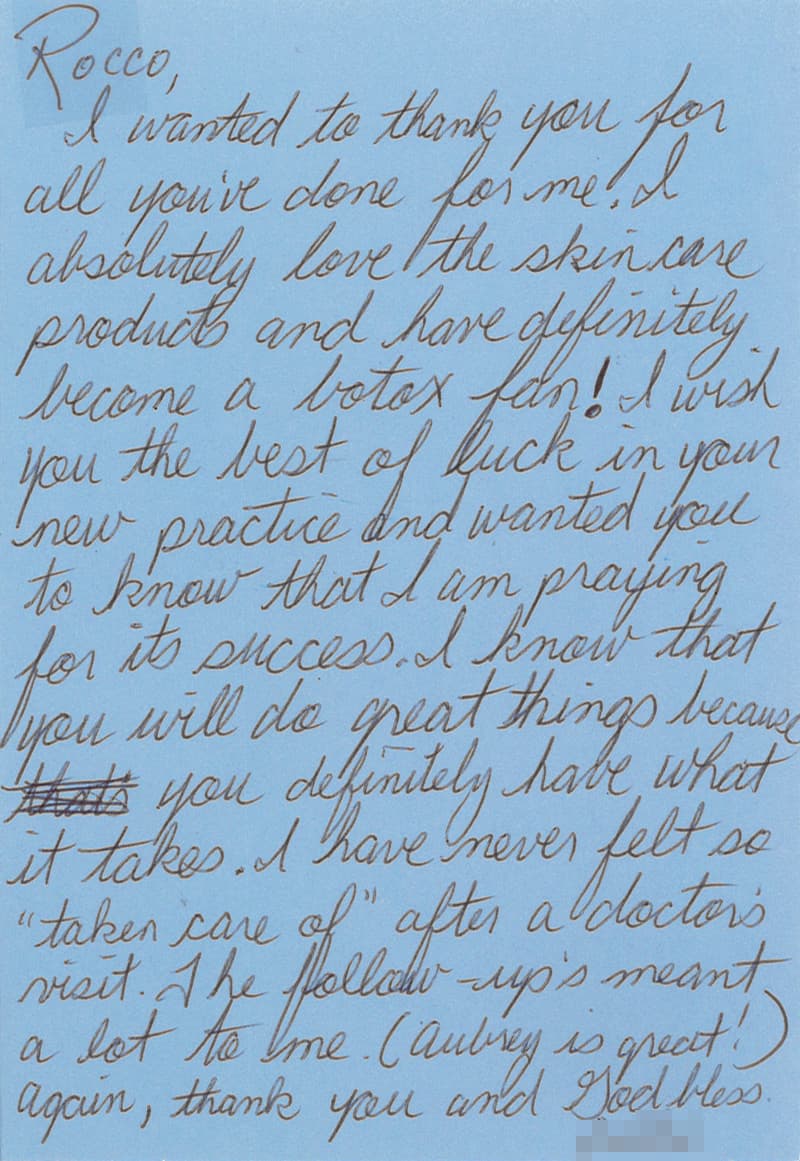 Rocco,
I wanted to thank you for
all you've done for me. I
absolutely love the skin care
products and have definitely
become a botox fan! I wish
you the best of luck in your
new practice and wanted you
to know that I am praying
for its success. I know that
you will do great things because
you definitely have what
it takes. I have never felt so
"taken care of" after a doctor's
visit. The follow-up's meant
a lot to me. (Aubrey is great!)
Again, thank you and God bless.